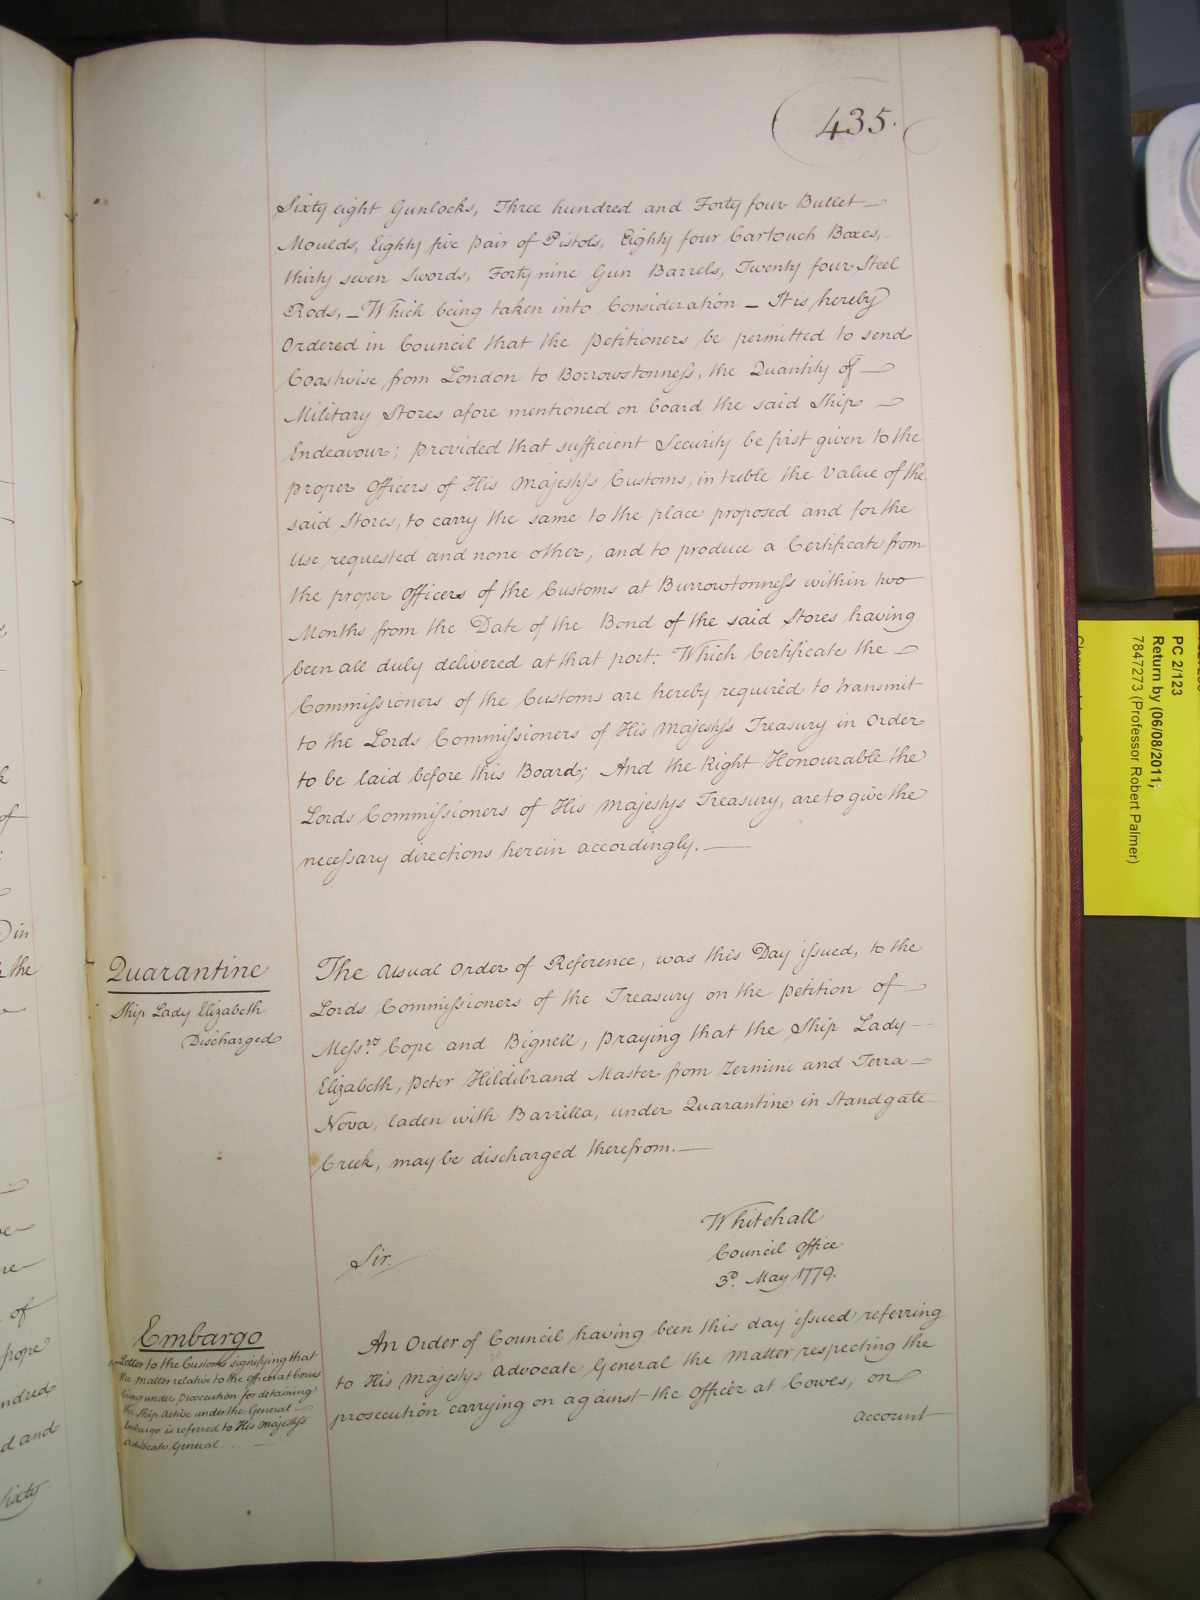 435.
Sixty eight Gunlocks, Three hundred and Forty four Bullet
Moulds, Eighty five pair of Pistols, Eighty four Cartouch Boxes,
thirty seven Swords, Forty nine Gun Barrels, Twenty four Steel
Rods, _ Which being taken into Consideration _ It is hereby
Ordered in Council that the Petitioners be permitted to send
Coastwise from London to Borrowstonness, the Quantity of
Military Stores afore mentioned on board the said Ship
Endeavour; provided that sufficient Security be first given to the
proper Officers of His Majestys Customs, in treble the Value of the
said Stores, to carry the same to the place proposed and for the
Use requested and none other, and to produce a Certificate from
the proper Officers of the Customs at Burrowtonness within two
Months from the Date of the Bond of the said Stores having
been all duly delivered at that port: Which Certificate the
Commissioners of the Customs are hereby required to transmit
to the Lords Commissioners of His Majestys Treasury in Order
to be laid before this Board; And the Right Honourable the
Lords Commissioners of His Majestys Treasury, are to give the
necessary directions herein accordingly.
Quarantine
Ship Lady Elizabeth
Discharged
The Usual Order of Reference, was this Day issued, to the
Lords Commissioners of the Treasury on the Petition of
Mess.rs Cope and Bignell, praying that the Ship Lady
Elizabeth, Peter Hildibrand Master from Zermini and Terra
Nova, laden with Barrilla, under Quarantine in Standgate
Creek, may be discharged therefrom.
Whitehall
Council Office
3.d May 1779.
Sir.
Embargo
Letter to the Customs signifying that
the matter relative to the officer at Cowes
being under prosecution for detaining
the Ship Active under the General
Embargo is referred to His Majestys
Advocate General
An Order of Council having been this day issued referring
to His Majestys Advocate General the Matter respecting the
prosecution carrying on against the Officer at Cowes, on
account
PC 2/123
Return by (06/08/2011;
7847273 (Professor Robert Palmer)
k
of
in
the
of
prope
ndred
d and
Sixty